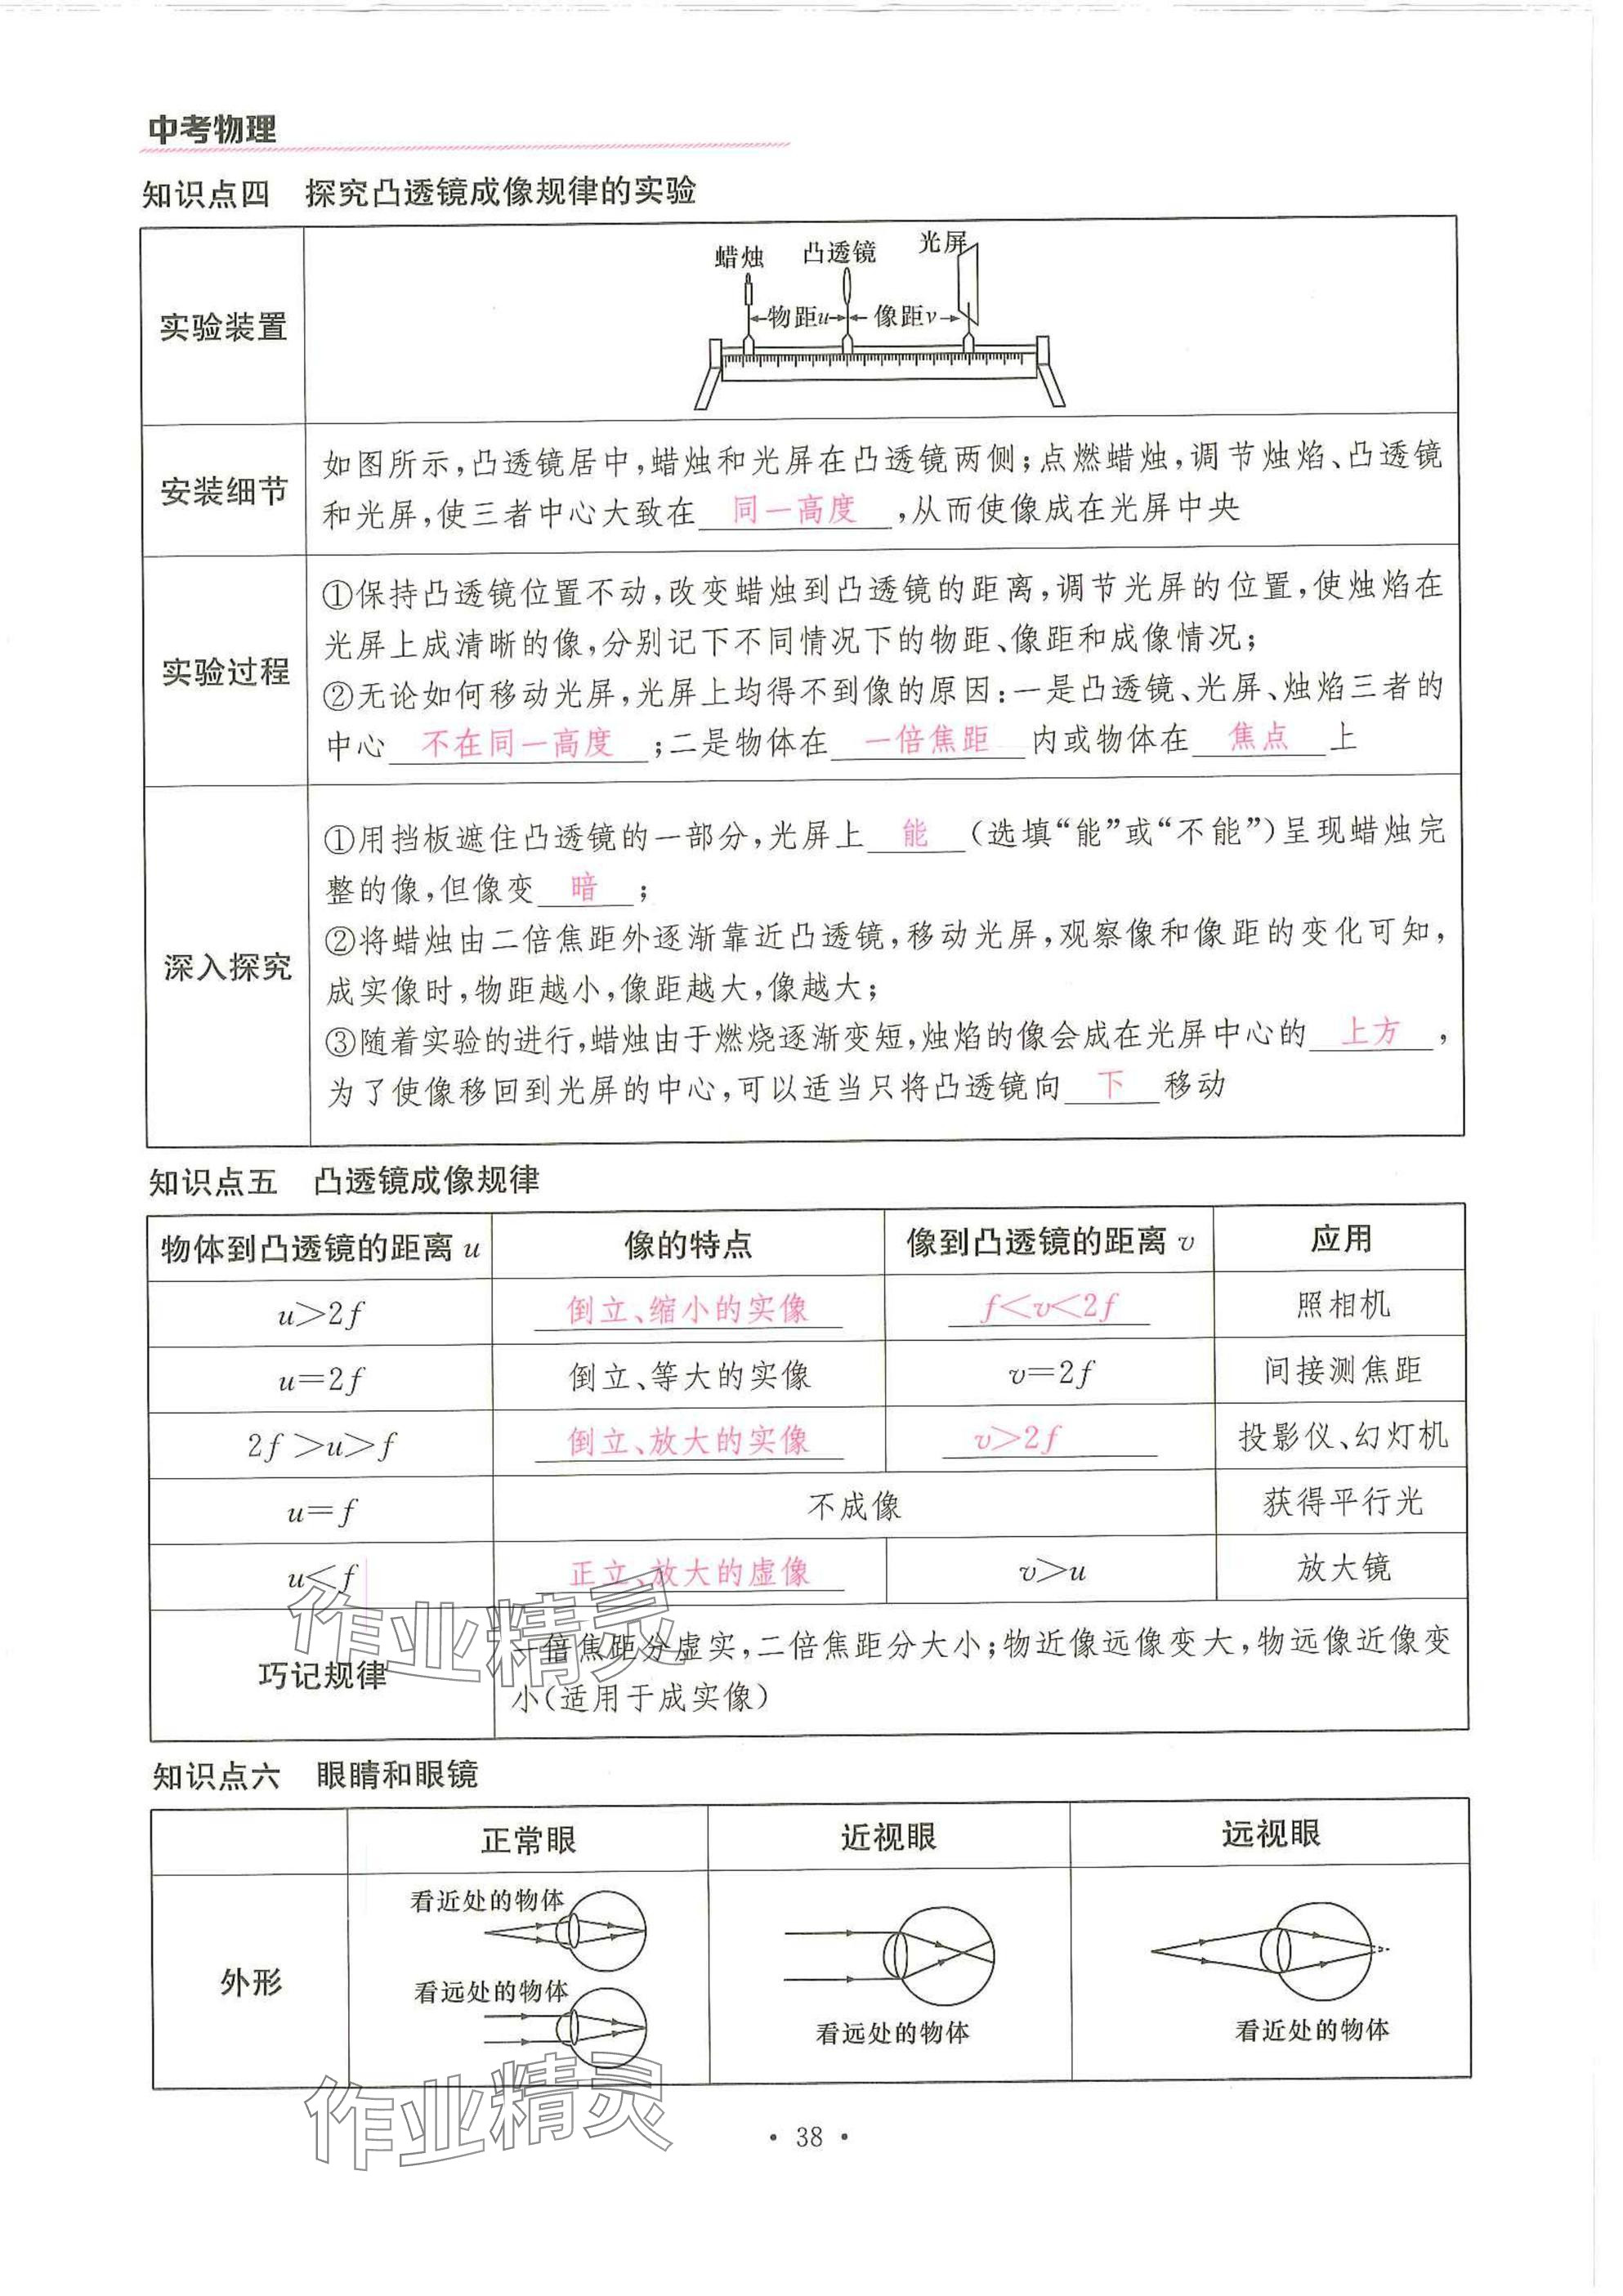 中考物理
知识点四　探究凸透镜成像规律的实验
蜡烛　凸透镜　光屏
物距u　像距v
实验装置
安装细节
如图所示,凸透镜居中,蜡烛和光屏在凸透镜两侧;点燃蜡烛,调节烛焰、凸透镜
和光屏,使三者中心大致在 同一高度 ,从而使像成在光屏中央
实验过程
①保持凸透镜位置不动,改变蜡烛到凸透镜的距离,调节光屏的位置,使烛焰在
光屏上成清晰的像,分别记下不同情况下的物距、像距和成像情况;
②无论如何移动光屏,光屏上均得不到像的原因:一是凸透镜、光屏、烛焰三者的
中心 不在同一高度 ;二是物体在 一倍焦距 内或物体在 焦点 上
深入探究
①用挡板遮住凸透镜的一部分,光屏上 能 (选填“能”或“不能”)呈现蜡烛完
整的像,但像变 暗 ;
②将蜡烛由二倍焦距外逐渐靠近凸透镜,移动光屏,观察像和像距的变化可知,
成实像时,物距越小,像距越大,像越大;
③随着实验的进行,蜡烛由于燃烧逐渐变短,烛焰的像会成在光屏中心的 上方 ,
为了使像移回到光屏的中心,可以适当只将凸透镜向 下 移动
知识点五　凸透镜成像规律
物体到凸透镜的距离 u　像的特点　像到凸透镜的距离 v　应用
u>2f　倒立、缩小的实像　f<v<2f　照相机
u=2f　倒立、等大的实像　v=2f　间接测焦距
2f>u>f　倒立、放大的实像　v>2f　投影仪、幻灯机
u=f　不成像　获得平行光
u<f　正立、放大的虚像　v>u　放大镜
巧记规律
一倍焦距分虚实,二倍焦距分大小;物近像远像变大,物远像近像变
小(适用于成实像)
作业精灵
知识点六　眼睛和眼镜
正常眼　近视眼　远视眼
外形
看近处的物体
看远处的物体
看远处的物体
看近处的物体
作业精灵
• 38 •